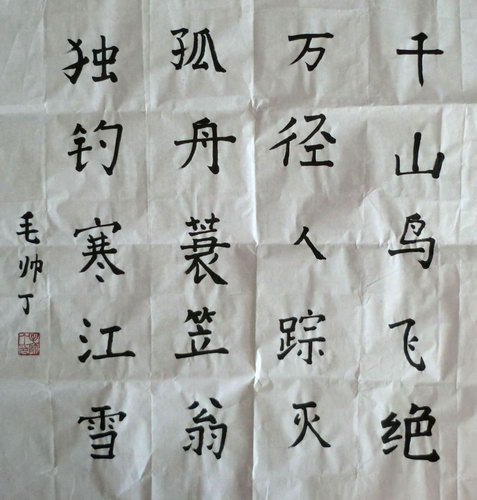 千山鸟飞绝
万径人踪灭
孤舟蓑笠翁
独钓寒江雪
毛帅丁